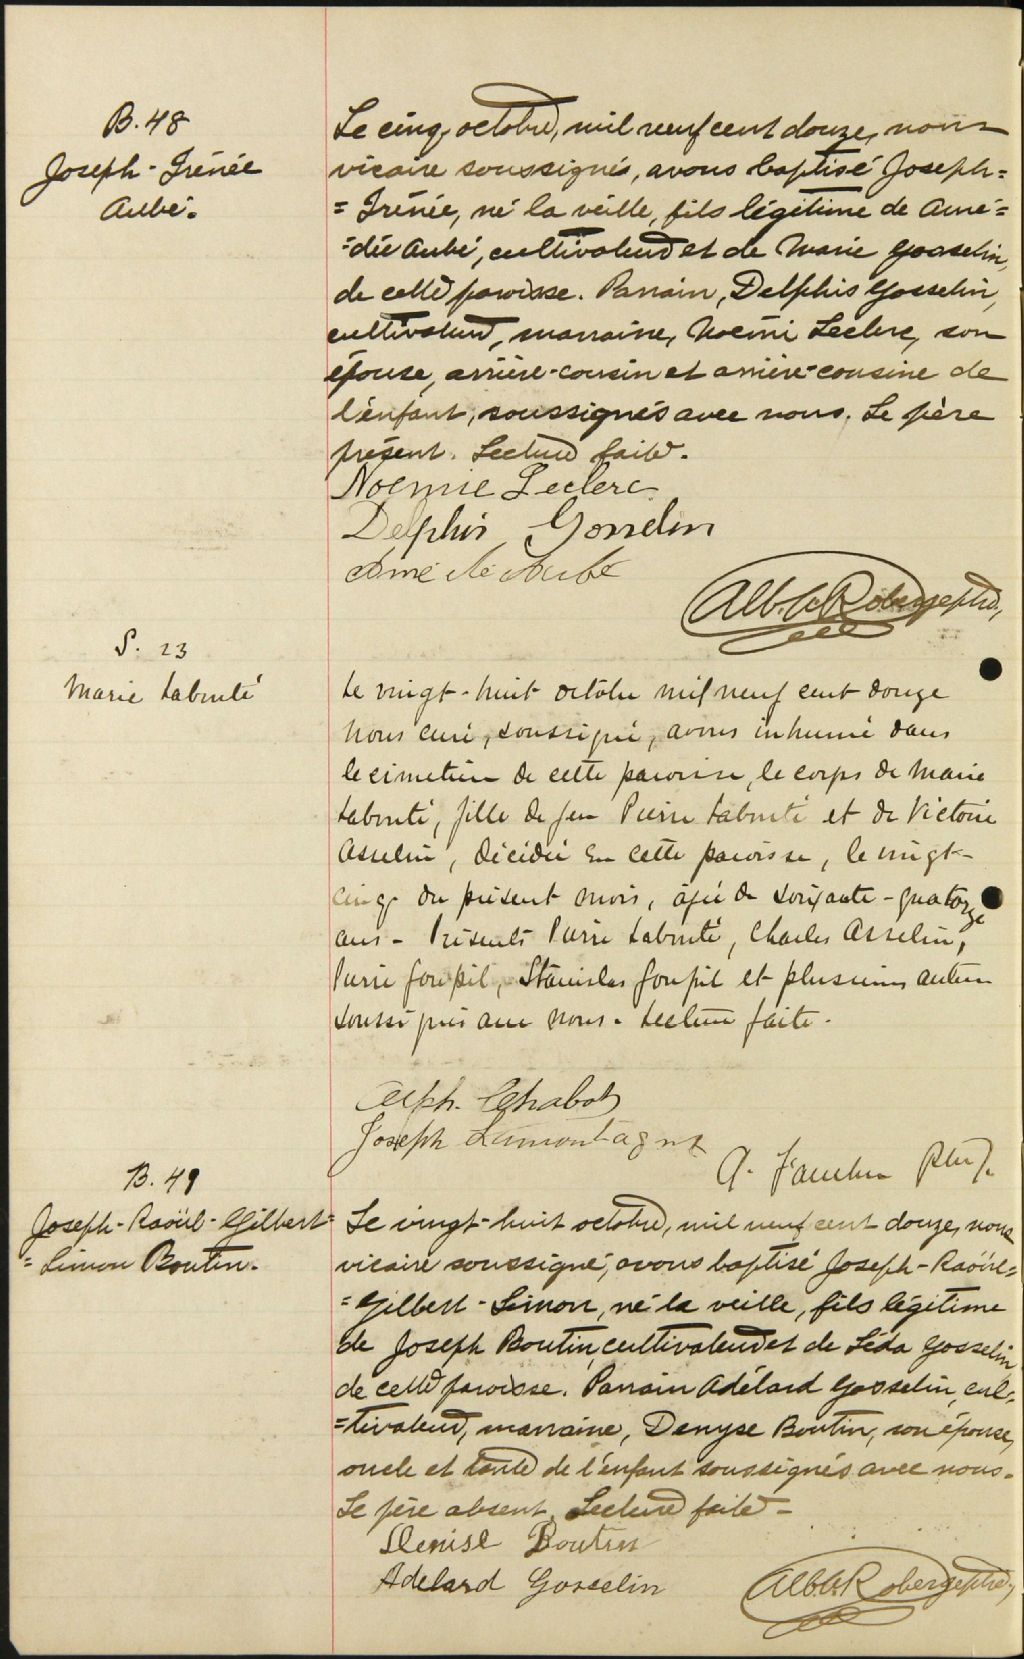 B. 48
Joseph - Irénée
Aubé.
Le cinq octobre, mil neuf cent douze, nous
vicaire soussignés, avons baptisé Joseph=
= Irénée, né la veille, fils légitime de Amé=
=dée Aubé, cultivateur et de Marie Gosselin,
de cette paroisse. Parrain, Delphis Gosselin,
cultivateur, marraine, Noémi Leclerc, son
épouse, arrière-cousin et arrière-cousine de
l'enfant, soussignés avec nous. Le père
présent. Lecture faite.
Noemie Leclerc
Delphis Gosselin
Amédé Aubé
Alb. Roberge ptre,
S. 23
Marie Labonté
Le vingt-huit octobre mil neuf cent douze
Nous curé, soussigné, avons inhumé dans
le cimetière de cette paroisse, le corps de Marie
Labonté, fille de feu Pierre Labonté et de Victoire
Asselin, décédée en cette paroisse, le vingt-
cinq du présent mois, âgée de soixante-quatorze
ans - Présents Pierre Labonté, Charles Asselin,
Pierre Goupil, Stanislas Goupil et plusieurs autres
soussignés avec nous. Lecture faite.
Alph. Chabot
Joseph Lamontagne
ptre
B. 49
Joseph-Raoül-Gilbert=
= Simon Boutin.
Le vingt-huit octobre, mil neuf cent douze, nous
vicaire soussigné, avons baptisé Joseph-Raoül=
=Gilbert-Simon, né la veille, fils légitime
de Joseph Boutin, cultivateur et de Léda Gosselin
de cette paroisse. Parrain Adélard Gosselin, cul=
=tivateur, marraine, Denyse Boutin, son épouse,
oncle et tante de l'enfant soussignés avec nous.
Le père absent. Lecture faite -
Denise Boutin
Adelard Gosselin
Alb. Roberge ptre,